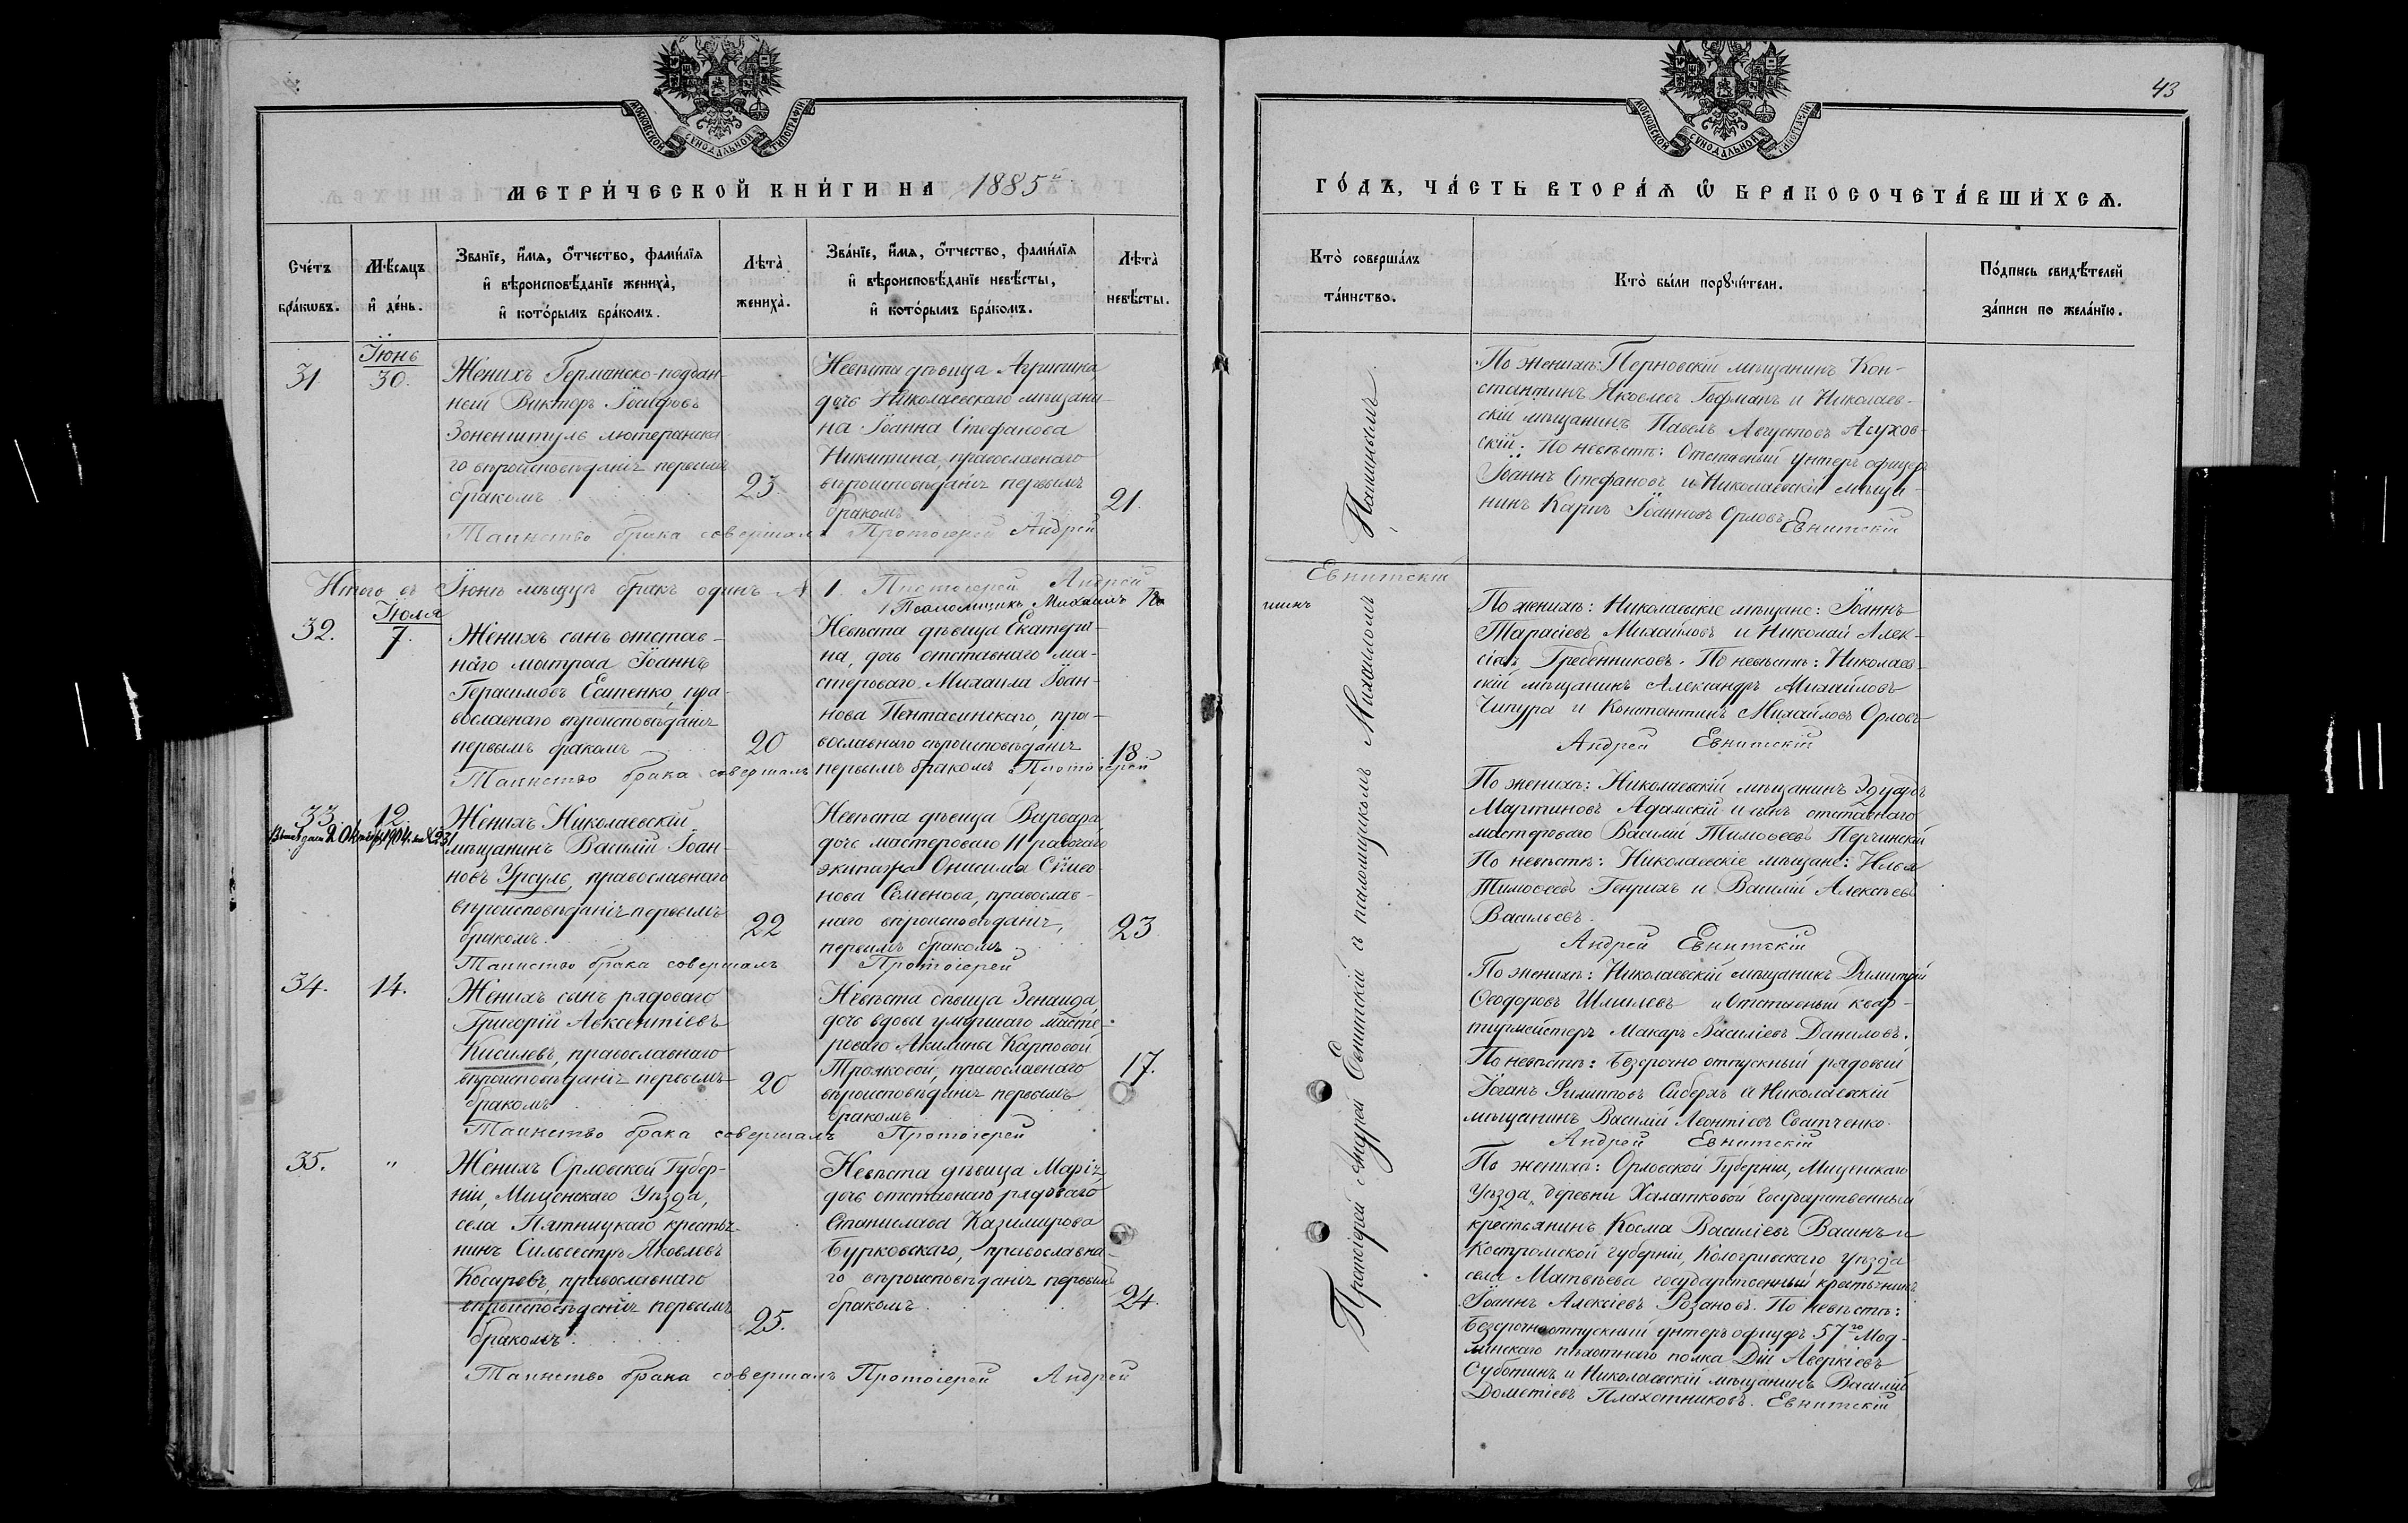 МОСКОВСКОЙ СѴНОДАЛЬНОЙ ТИПОГРАФІИ
МЕТРИ́ЧЕСКОЙ КНИ́ГИ НА 1885й
Сче́тъ бра́кωвъ.
Мѣ́сяцъ и҆ де́нь.
Зва́нїе, и҆́мѧ, ѻ҆́тчество, фами́лїѧ
и҆ вѣроисповѣ́данїе жениха̀,
и҆ кото́рымъ бра́комъ.
Лѣта̀ жениха̀.
Зва́нїе, и҆́мѧ, ѻ҆́тчество, фами́лїѧ
и҆ вѣроисповѣ́данїе невѣ́сты,
и҆ кото́рымъ бра́комъ.
Лѣта̀ невѣ́сты.
31
Іюнь
30.
Женихъ Германско-поддан-
ный Викторъ Іосифовъ
Зоненштуль лютеранска
го вѣроисповѣданія первымъ
бракомъ
23
Невѣста дѣвица Агрипина,
дочь Николаевскаго мѣщани
на Іоанна Стефанова
Никитина, православнаго
вѣроисповѣданія первымъ
бракомъ
21.
Таинство брака совершалъ Протоіерей Андрей
Итого въ Іюнѣ мѣсяцѣ бракъ одинъ № 1. Протоіерей Андрей
Псаломщикъ Михаилъ Па
32.
Іюля
7.
Женихъ сынъ отстав-
наго матроса Іоаннъ
Герасимовъ Есипенко, пра-
вославнаго вѣроисповѣданія
первымъ бракомъ
20
Невѣста дѣвица Екатери-
на, дочь отставнаго ма-
стероваго Михаила Іоан-
нова Пентасинскаго, пра-
вославнаго вѣроисповѣданія
первымъ бракомъ
18
Таинство брака совершалъ Протоіерей
33.
12.
2 Октября 1904
Женихъ Николаевскій
мѣщанинъ Василій Іоан-
новъ Урсулъ, православнаго
вѣроисповѣданія первымъ
бракомъ.
22
Невѣста дѣвица Варвара
дочь мастероваго 11 рабочаго
экипажа Онисима Сѵмео
нова Семенова, православ-
наго вѣроисповѣданія,
первымъ бракомъ
23
Таинство брака совершалъ Протоіерей
34.
14.
Женихъ сынъ рядоваго
Григорій Авксентіевъ
Киселевъ, православнаго
вѣроисповѣданія первымъ
бракомъ
20
Невѣста дѣвица Зенаида
дочь вдовы умершаго масте-
роваго Акилины Карповой
Трояковой, православнаго
вѣроисповѣданія первымъ
бракомъ
17.
Таинство брака совершалъ Протоіерей
35.
"
Женихъ Орловской Губер-
ніи, Мценскаго Уѣзда,
села Пятницкаго крестья
нинъ Сильвестръ Яковлевъ
Косаревъ, православнаго
вѣроисповѣданія первымъ
бракомъ.
25.
Невѣста дѣвица Марія,
дочь отставнаго рядоваго
Станислава Казимирова
Бурковскаго, православна-
го вѣроисповѣданія первымъ
бракомъ
24.
Таинство брака совершалъ Протоіерей Андрей
43
МОСКОВСКОЙ СѴНОДАЛЬНОЙ ТИПОГРАФІИ
ГО́ДЪ, ЧА́СТЬ ВТОРА́Ѧ Ѽ БРАКОСОЧЕТА́ВШИХСѦ.
Кто̀ соверша́лъ та́инство.
Кто̀ бы́ли порꙋчи́тели.
По́дпись свидѣ́телей за́писи по жела́нїю.
Протоіерей Андрей Евнитскій съ псаломщикомъ Михаиломъ Пашинымъ.
По женихѣ: Перновскій мѣщанинъ Кон-
стантинъ Яковлевъ Гофманъ и Николаев-
скій мѣщанинъ Павелъ Августовъ
скій; По невѣстѣ: Отставный унтеръ офицеръ
Іоаннъ Стефановъ и Николаевскій мѣща-
нинъ Карпъ Іоанновъ Орловъ
Евнитскій
Евнитскій
шинъ
По женихѣ: Николаевскіе мѣщане: Іоаннъ
Тарасіевъ Михайловъ и Николай Алек-
сіевъ Гребенниковъ. По невѣстѣ: Николаев-
скій мѣщанинъ Александръ Михайловъ
Чипура и Константинъ Михайловъ Орловъ
Андрей Евнитскій
По женихѣ: Николаевскій мѣщанинъ Эдуардъ
Мартиновъ Адамскій и сынъ отставнаго
мастероваго Василій Тимофеевъ Перчинскій
По невѣстѣ: Николаевскіе мѣщане: Илья
Тимофеевъ Генрихъ и Василій Алексѣевъ
Васильевъ.
Андрей Евнитскій
По женихѣ: Николаевскій мѣщанинъ Димитрій
Ѳеодоровъ Шмилевъ и Отставный квар-
тирмейстеръ Макаръ Василіевъ Даниловъ.
По невѣстѣ: Безсрочно отпускный рядовый
Іоганъ Филипповъ Сиберхъ и Николаевскій
мѣщанинъ Василій Леонтіевъ Святченко.
Андрей Евнитскій
По женихѣ: Орловской Губерніи, Мценскаго
Уѣзда, деревни Халатковой Государственный
крестьянинъ Косма Василіевъ Васинъ и
Костромской губерніи, Кологривскаго уѣзда
села Матвѣева государственный крестьянинъ
Іоаннъ Алексіевъ Розановъ. По невѣстѣ:
Безсрочноотпускный унтеръ офицеръ 57го Мод-
линскаго пѣхотнаго полка Дій Аверкіевъ
Суботинъ и Николаевскій мѣщанинъ Василій
Дометіевъ Плахотниковъ. Евнитскій